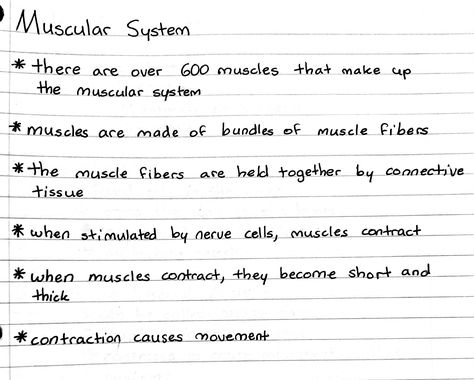 Muscular System
* there are over 600 muscles that make up
the muscular system
* muscles are made of bundles of muscle fibers
* the muscle fibers are held together by connective
tissue
* when stimulated by nerve cells, muscles contract
* when muscles contract, they become short and
thick
* contraction causes movement